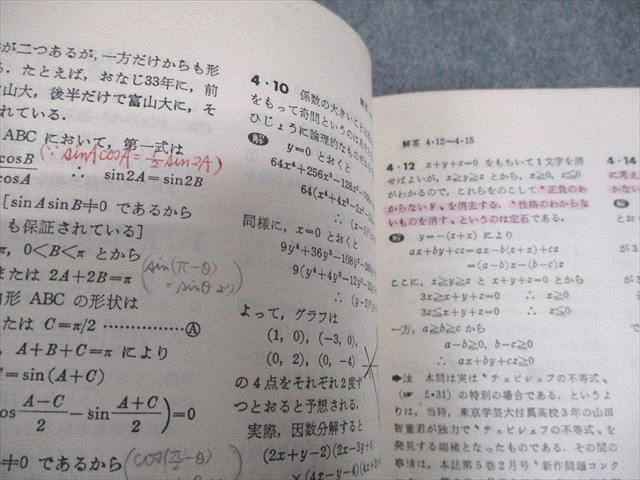 が二つあるが,一方だけからも形
る.たとえば,おなじ33年に,前
山大,後半だけで富山大に,そ
れている.
ABC において,第一式は
(∵ sinAcosA=½sin2A)
cosB/cosA ∴ sin2A=sin2B
[sinAsinB≠0 であるから
も保証されている]
π, 0<B<π とから
または 2A+2B=π
(sin(π-θ)
=sinθより)
形 ABC の形状は
たは C=π/2 ……………Ⓐ
, A+B+C=π により
=sin(A+C)
cos (A-C)/2 - sin (A+C)/2)=0
≠0 であるから
(cos(π/2-θ)
4・10 係数の大きいこと
をもって奇問というのはあ
ひじょうに論理的なもの
解 y=0 とおくと
64x⁴+256x³-128x²
64(x⁴+4x³-2x²
∴ (x
同様に, x=0 とおくと
9y⁴+36y³-108y²
9(y⁴+4y³-12y²
∴ (y
よって,グラフは
(1, 0), (-3, 0),
(0, 2), (0, -4)
の4点をそれぞれ2度ず
つとおると予想される.
実際,因数分解すると
(2x+y-2)(2x-3y+
×(4x-y-4)(4x+
解答 4・12〜4・15
4・12 x+y+z=0 をもちいて1文字を消
せばよいが, x≧y≧z とから, x≧0, z≦0
がわかるので,これらをのこして〝正負のわ
からないy〟を消去する.〝性格のわからな
いものを消す〟というのは定石である.
解 y=-(z+x) により
ax+by+cz=ax-b(z+x)+cz
=(a-b)x-(b-c)z
ここに, x≧y≧z と x+y+z=0 とから
3x≧x+y+z=0 ∴ x≧0
3z≦x+y+z=0 ∴ z≦0
一方, a≧b≧c から
a-b≧0, b-c≧0
∴ ax+by+cz≧0
→注 本問は実は〝チェビシェフの不等式〟
(☞ 5・31) の特別の場合である.というよ
りは,当時,東京学芸大付属高校3年の山田
智重君が独力で〝チェビシェフの不等式〟を
発見する端緒となったものである.その間の
事情は,本誌第5巻2月号〝新作問題コンク
4・14
に考え